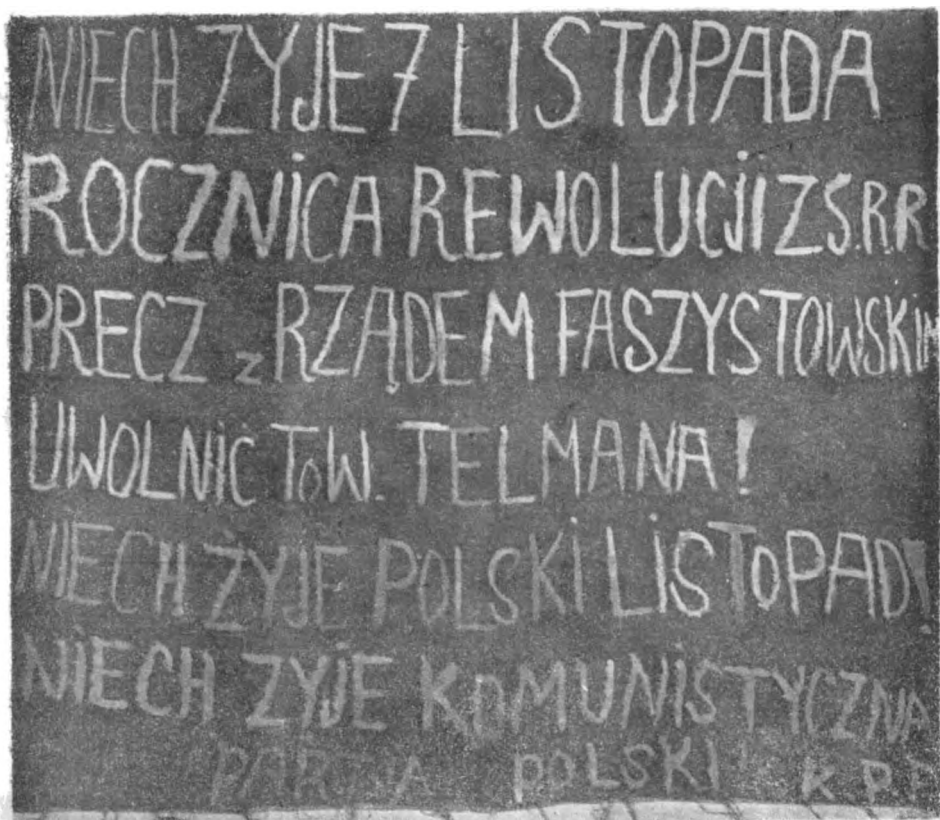 NIECH ZYJE 7 LISTOPADA
ROCZNiCA REWOLUCJi Z S.R.R
PRECZ z RZĄDEM FASZYSTOWSKiM
UWOLNiĆ ToW. TELMANA!
NIECH ŻYJE POLSKi LiSToPAD!
NiECH ZYJE KOMUNiSTYCZNA
PARTJA POLSKI K P P